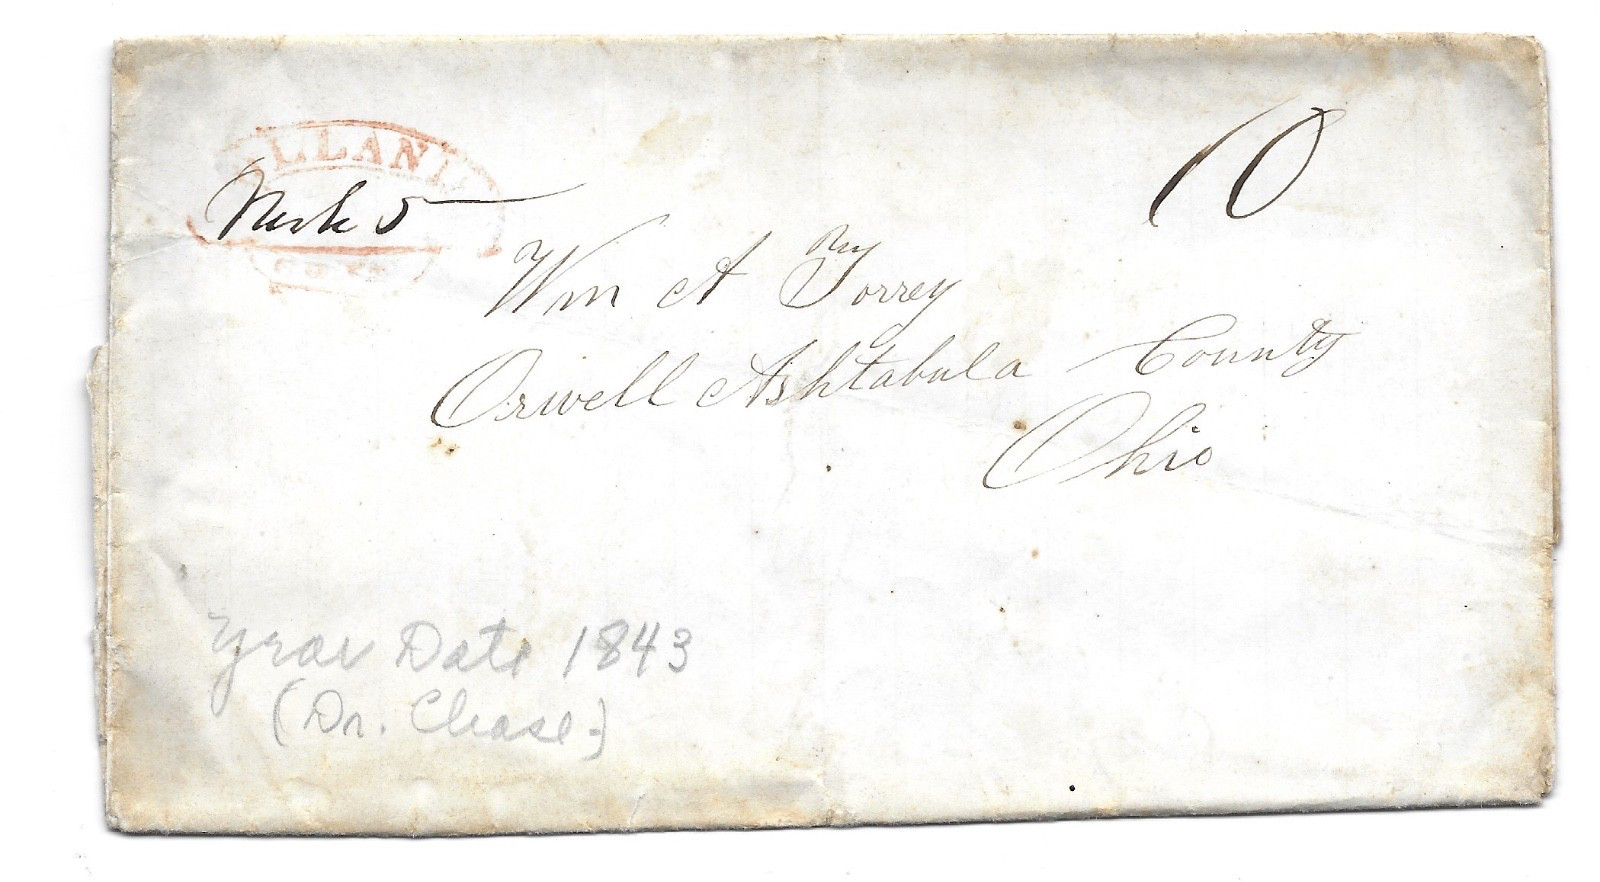 LLAN
5
10
Wm A Torrey
Orwell Ashtabula County
Ohio
Year Date 1843
(Dr. Chase)